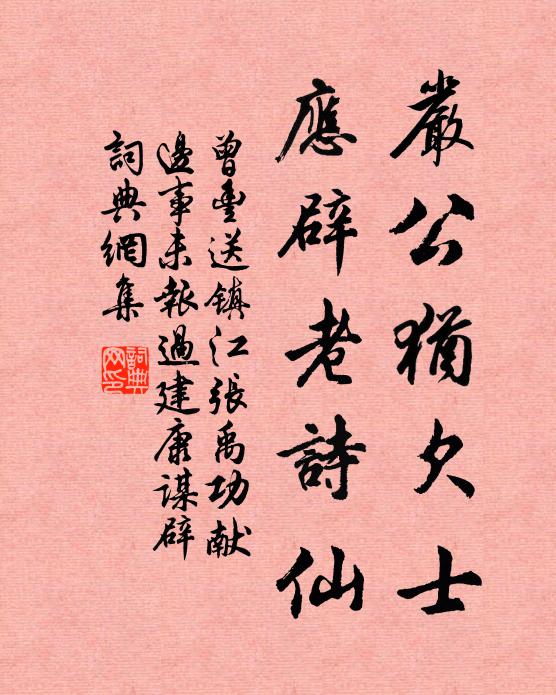 嚴公猶欠士
應辟老詩仙
曾豐送鎮江張禹功献
邊事未報過建康謀辟
詞典網集
詞典網印